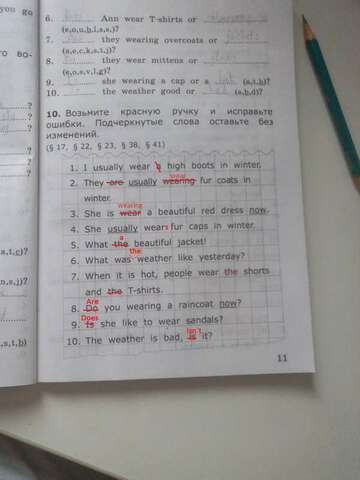 you go
6. Ann wear T-shirts or
(e,o,u,b,l,s,s,)?
7. they wearing overcoats or
(a,e,c,k,s,t,j)?
8. they wear mittens or
(e,o,s,v,l,g)?
9. she wearing a cap or a (a,t,h)?
10. the weather good or (a,b,d)?
10. Возьмите красную ручку и исправьте
ошибки. Подчеркнутые слова оставьте без
изменений.
(§ 17, § 22, § 23, § 38, § 41)
1. I usually wear a high boots in winter.
wear
2. They are usually wearing fur coats in
winter.
wearing
3. She is wear a beautiful red dress now.
4. She usually wears fur caps in winter.
a
5. What the beautiful jacket!
the
6. What was weather like yesterday?
7. When it is hot, people wear the shorts
and the T-shirts.
Are
8. Do you wearing a raincoat now?
Does
9. Is she like to wear sandals?
isn't
10. The weather is bad, is it?
11